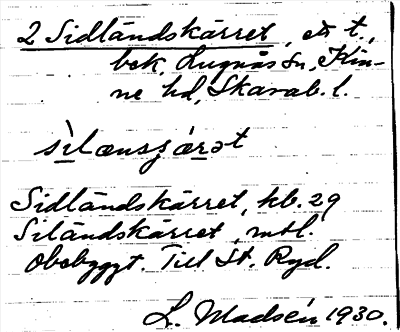 2 Sidländskärret, ett t.,
bek, Hugnås Sn, Kin-
ne hd, Skarab. l.
sìlænsʃárət
Sidländskärret, kb. 29
Siländskärret, mtl.
Obebyggt. Till St. Ryd.
L. Madsén 1930.